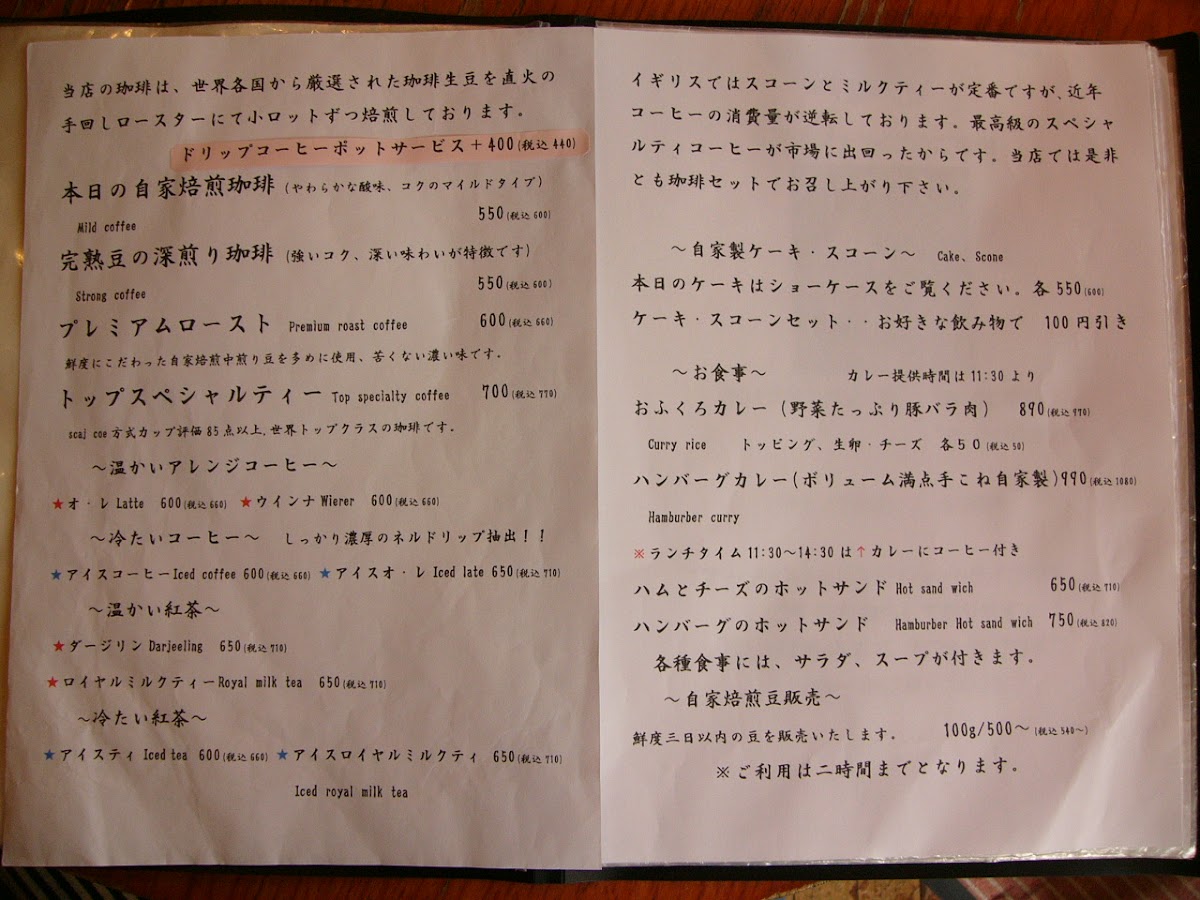 当店の珈琲は、世界各国から厳選された珈琲生豆を直火の
手回しロースターにて小ロットずつ焙煎しております。
ドリップコーヒーポットサービス＋400(税込440)
本日の自家焙煎珈琲 (やわらかな酸味、コクのマイルドタイプ)
Mild coffee 550(税込600)
完熟豆の深煎り珈琲 (強いコク、深い味わいが特徴です)
Strong coffee 550(税込600)
プレミアムロースト Premium roast coffee 600(税込660)
鮮度にこだわった自家焙煎中煎り豆を多めに使用、苦くない濃い味です。
トップスペシャルティー Top specialty coffee 700(税込770)
scaj coe方式カップ評価85点以上,世界トップクラスの珈琲です。
～温かいアレンジコーヒー～
★オ・レ Latte 600(税込660) ★ウインナ Wierer 600(税込660)
～冷たいコーヒー～ しっかり濃厚のネルドリップ抽出！！
★アイスコーヒー Iced coffee 600(税込660) ★アイスオ・レ Iced late 650(税込710)
～温かい紅茶～
★ダージリン Darjeeling 650(税込710)
★ロイヤルミルクティー Royal milk tea 650(税込710)
～冷たい紅茶～
★アイスティ Iced tea 600(税込660) ★アイスロイヤルミルクティ 650(税込710)
Iced royal milk tea
イギリスではスコーンとミルクティーが定番ですが、近年
コーヒーの消費量が逆転しております。最高級のスペシャ
ルティコーヒーが市場に出回ったからです。当店では是非
とも珈琲セットでお召し上がり下さい。
～自家製ケーキ・スコーン～ Cake、Scone
本日のケーキはショーケースをご覧ください。各550(600)
ケーキ・スコーンセット・・お好きな飲み物で 100円引き
～お食事～ カレー提供時間は11:30より
おふくろカレー (野菜たっぷり豚バラ肉) 890(税込970)
Curry rice トッピング、生卵・チーズ 各50(税込50)
ハンバーグカレー(ボリューム満点手こね自家製)990(税込1080)
Hamburber curry
※ランチタイム11:30～14:30は↑カレーにコーヒー付き
ハムとチーズのホットサンド Hot sand wich 650(税込710)
ハンバーグのホットサンド Hamburber Hot sand wich 750(税込820)
各種食事には、サラダ、スープが付きます。
～自家焙煎豆販売～
鮮度三日以内の豆を販売いたします。 100g/500～(税込540～)
※ご利用は二時間までとなります。